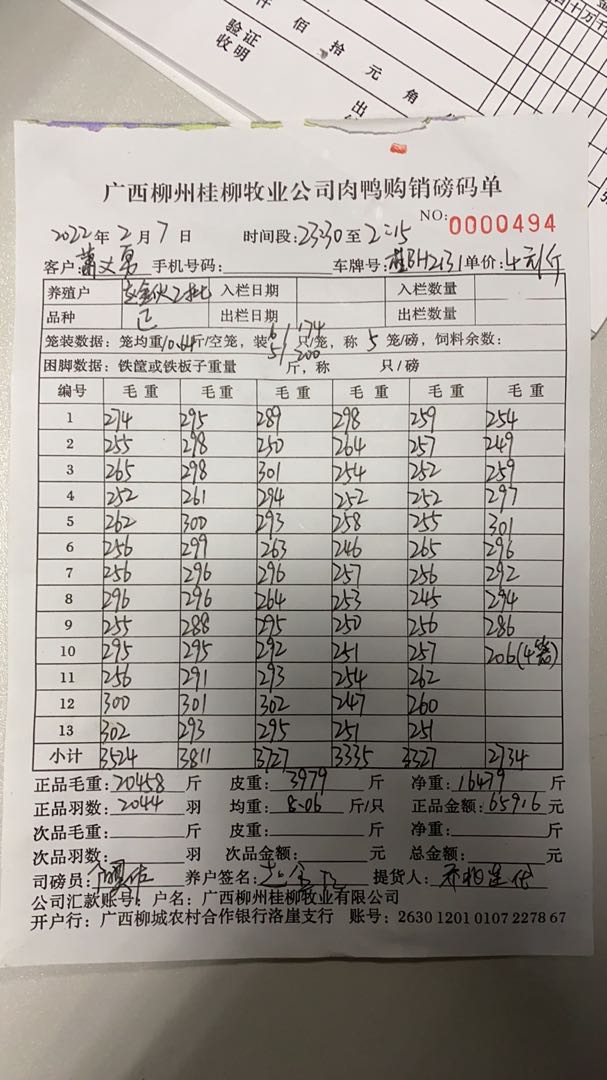 仟 佰 拾 元 角
验证
收明
出
广西柳州桂柳牧业公司肉鸭购销磅码单
NO: 0000494
2022年2月7日 时间段:23:30至2:15
客户: 手机号码: 车牌号:桂BH2131 单价:4元/斤
养殖户 入栏日期 入栏数量
品种 出栏日期 出栏数量
笼装数据:笼均重10.64斤/空笼,装6/174 5/200只/笼,称5笼/磅,饲料余数:
困脚数据:铁筐或铁板子重量 斤,称 只/磅
编号 毛重 毛重 毛重 毛重 毛重 毛重
1 274 295 289 298 259 254
2 255 298 250 264 257 249
3 265 298 301 254 252 259
4 252 261 294 252 252 297
5 262 300 293 258 255 301
6 256 299 263 246 265 296
7 256 296 296 257 256 292
8 296 296 264 253 245 294
9 255 288 295 250 256 286
10 295 295 292 251 257 206(4笼)
11 256 291 293 254 262
12 300 301 302 247 260
13 302 293 295 251 251
小计 3524 3811 3727 3335 3327 2734
正品毛重:20458斤 皮重:3979斤 净重:16479斤
正品羽数:2044羽 均重:8.06斤/只 正品金额:65916元
次品毛重: 斤 皮重: 斤 净重: 斤
次品羽数: 羽 次品金额: 元 总金额: 元
司磅员: 养户签名: 提货人:
公司汇款账号:户名:广西柳州桂柳牧业有限公司
开户行:广西柳城农村合作银行洛崖支行 账号:2630 1201 0107 2278 67